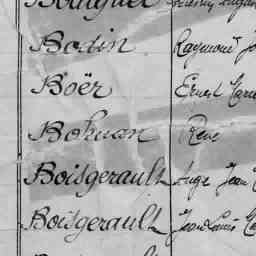 Bodin Raymond
Boër Ernest
Bohuan René
Boisgerault Ange Jean
Boisgerault Jean Louis